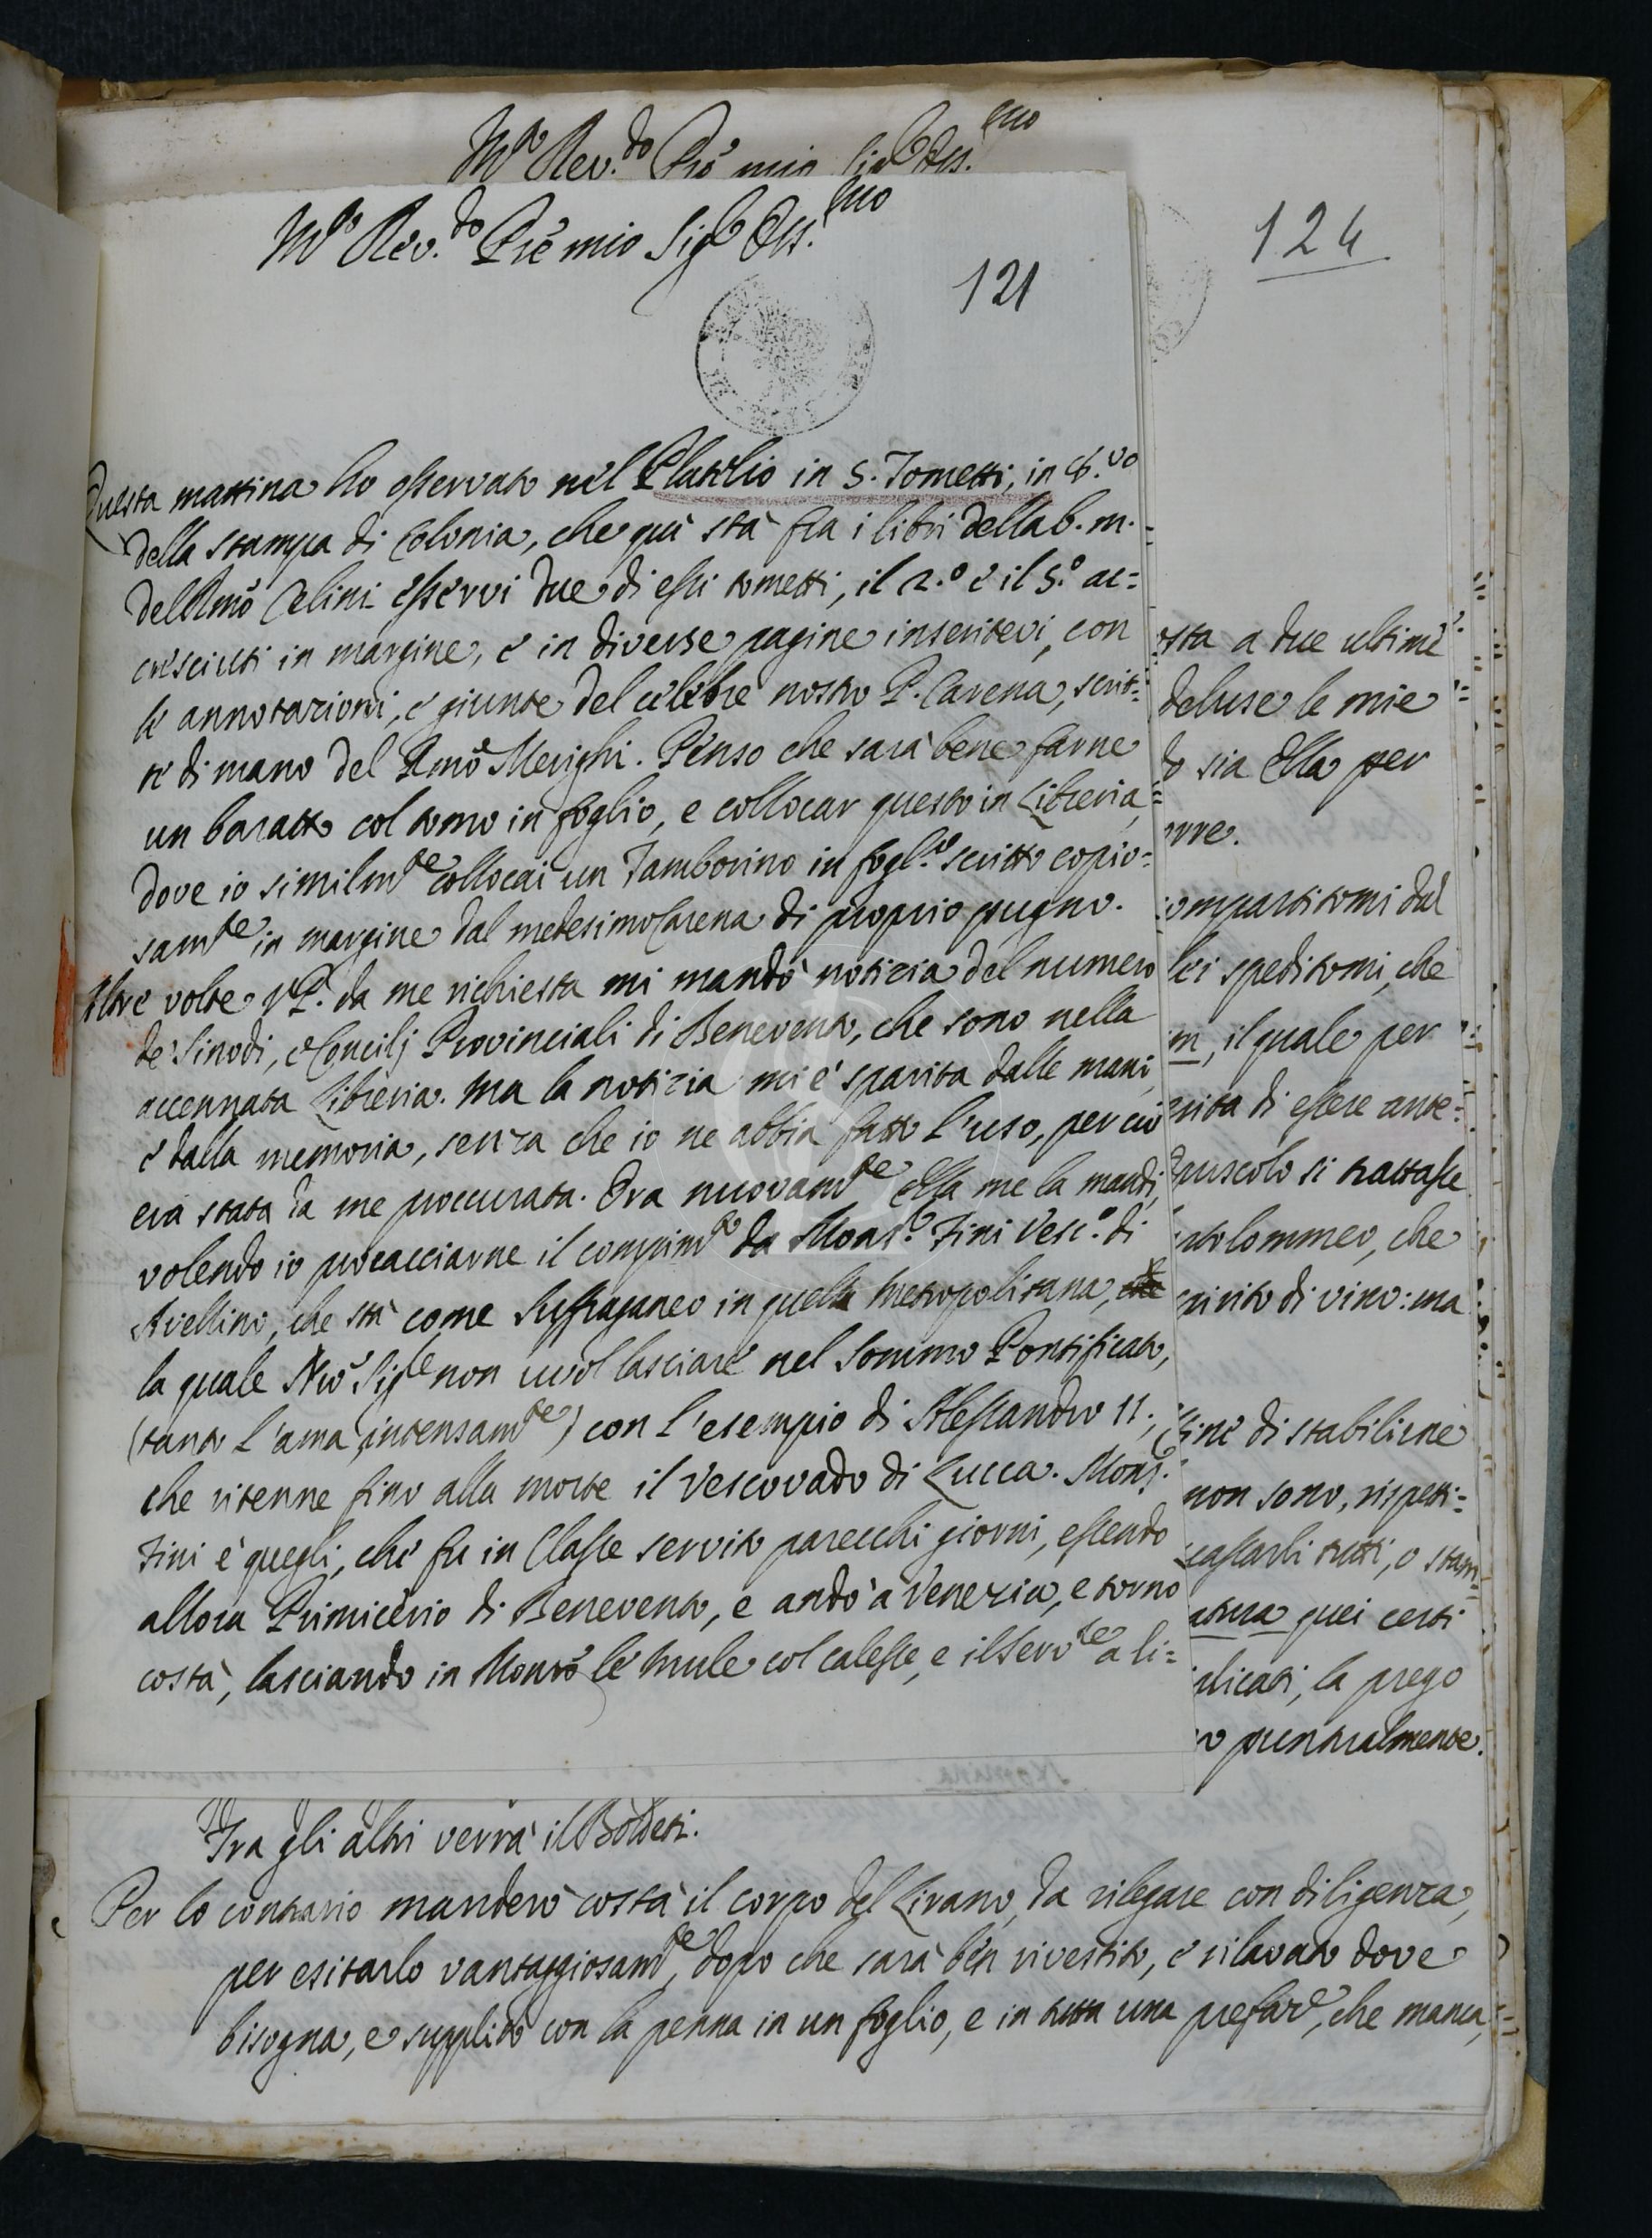 M.o Rev.do Pre mio Sig.r Oss.mo
124
M.o Rev.do Prē mio Sig.r Oss.mo
121
Questa mattina ho osservato nel Platelio in 5. Tometti, in 8.vo
della stampa di Colonia, che quì stà fra i libri della b. m.
del Rmō Celini esservi due di essi tometti, il 2.o e il 5.o ac=
cresciuti in margine, e in diverse pagine inseritevi, con
le annotazioni, e giunte del celebre nostro P. Carena, scrit=
te di mano del Rmō Merighi. Penso che sarà bene farne
un baratto col tomo in foglio, e collocar questo in Libreria,
dove io similmte collocai un Tamborino in fogl.o scritto copio=
samte in margine dal medesimo Carena di proprio pugno.
Altre volte V.P. da me richiesta mi mandò notizia del numero
de' Sinodi, e Concilj Provinciali di Benevento, che sono nella
accennata Libreria. Ma la notizia mi è sparita dalle mani,
e dalla memoria, senza che io ne abbia fatto l'uso, per cui
era stata da me proccurata. Ora nuovamte Ella me la mandi,
volendo io procacciarne il compimto da Mons.r Fini Vesc.o di
Avellino, che stà come Suffraganeo in quella Metropolitana, che
la quale Nrō Sig.re non vuol lasciare nel Sommo Pontificato,
(tanto l'ama intensamte) con l'esempio di Alessandro II.,
che ritenne fino alla morte il Vescovado di Lucca. Mons.r
Fini è quegli, che fu in Classe servito parecchi giorni, essendo
allora Primicerio di Benevento, e andò a Venezia, e tornò
costà, lasciando in Monrō le mule col calesse, e il serv.te a li=
sta a due ultime
deluse le mie
sia Ella per
rre.
ompartitomi dal
lei speditomi, che
m, il quale per
rita di essere ante=
puscolo si trattasse
tolommeo, che
pirito di vino: ma
fine di stabilirne
non sono, rispetti=
cassarli tutti, o stam=
atura quei certi
plicati, la prego
o puntualmente.
Fra gli altri verrà il Boldeti.
Per lo contrario manderò costà il corpo del Lirano, da rilegare con diligenza,
per esitarlo vantaggiosamte, dopo che sarà ben rivestito, e rilavato dove
bisogna, e supplito con la penna in un foglio, e in tutta una prefaz.e, che manca,